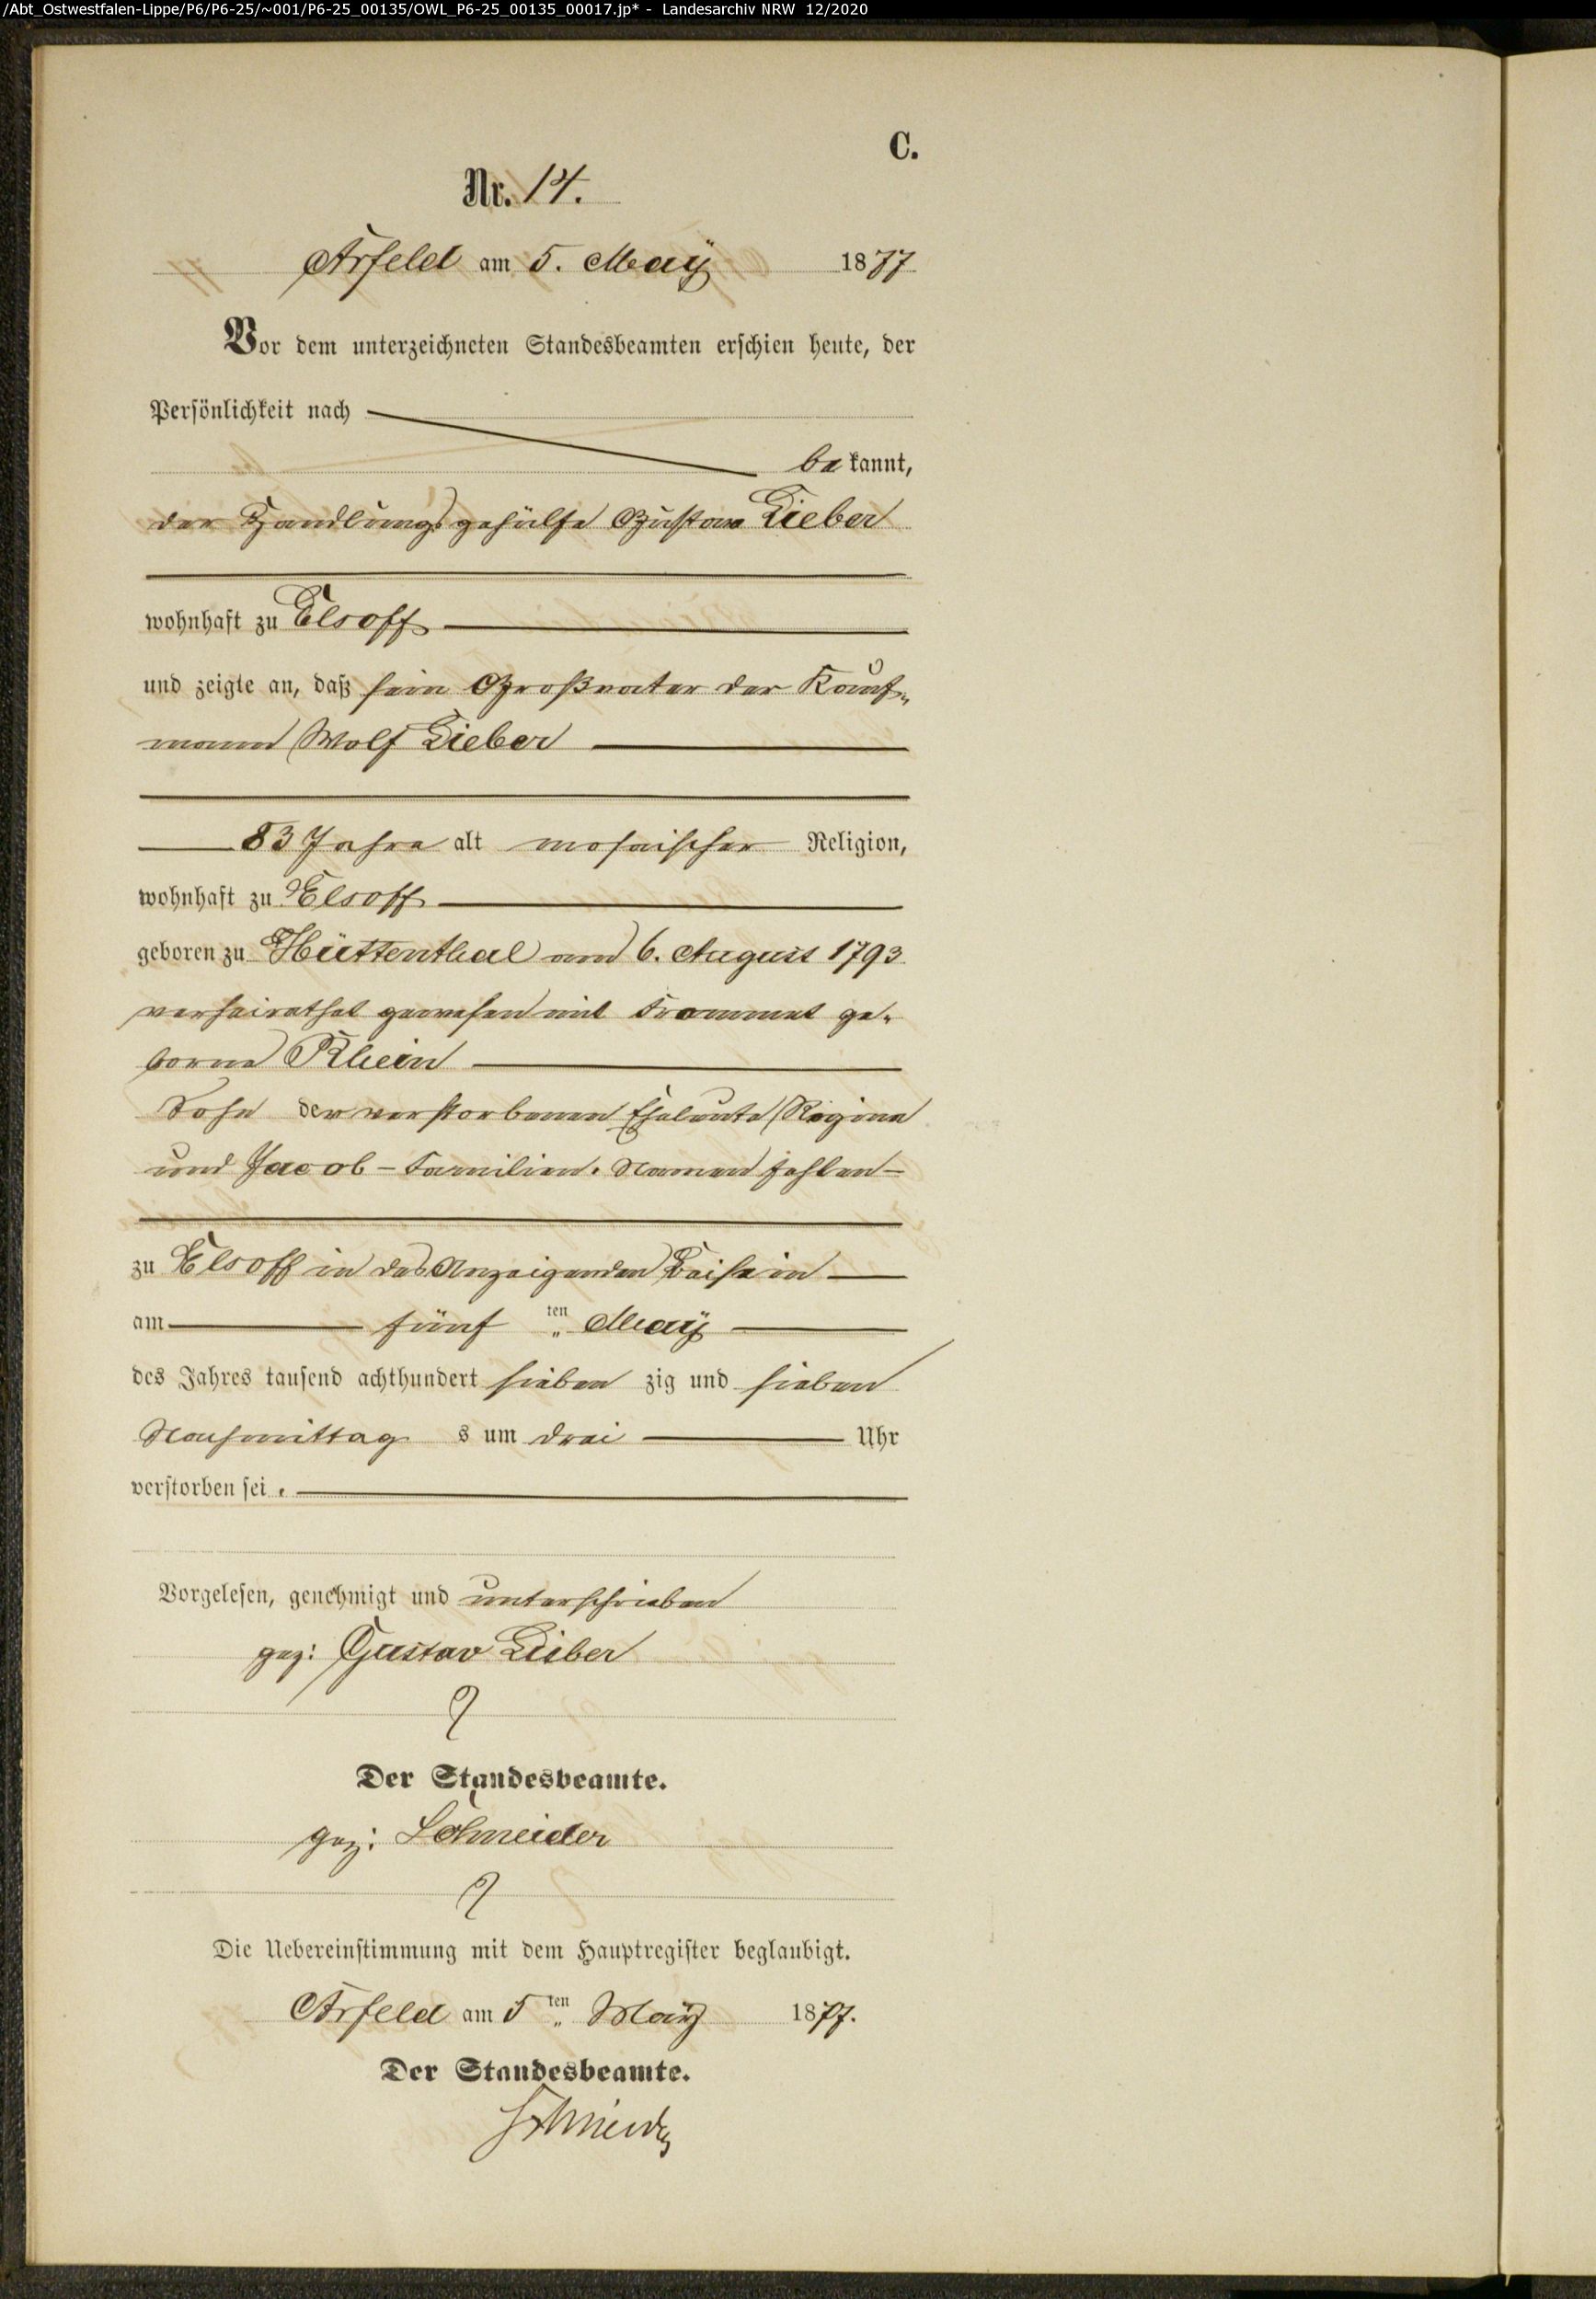 /Abt_Ostwestfalen-Lippe/P6/P6-25/~001/P6-25_00135/OWL_P6-25_00135_00017.jp* - Landesarchiv NRW 12/2020
C.
Nr. 14.
Arfeld am 5. May 1877
Vor dem unterzeichneten Standesbeamten erschien heute, der
Persönlichkeit nach
bekannt,
der Handlungsgehülfe Gustav Lieber
wohnhaft zu Elsoff
und zeigte an, daß sein Großvater der Kauf-
mann Wolf Lieber
83 Jahre alt mosaischer Religion,
wohnhaft zu Elsoff
geboren zu Hüttenthal am 6. August 1793
verheirathet gewesen mit Frommet ge-
borne Rhein
Sohn der verstorbenen Eheleute Regina
und Jacob - Familien-Namen fehlen -
zu Elsoff in des Anzeigenden Beisein
am fünften May
des Jahres tausend achthundert siebenzig und sieben
Nachmittags um drei Uhr
verstorben sei.
Vorgelesen, genehmigt und unterschrieben
gez: Gustav Lieber
Der Standesbeamte.
gez: Schneider
Die Uebereinstimmung mit dem Hauptregister beglaubigt.
Arfeld am 5ten May 1877.
Der Standesbeamte.
Schneider